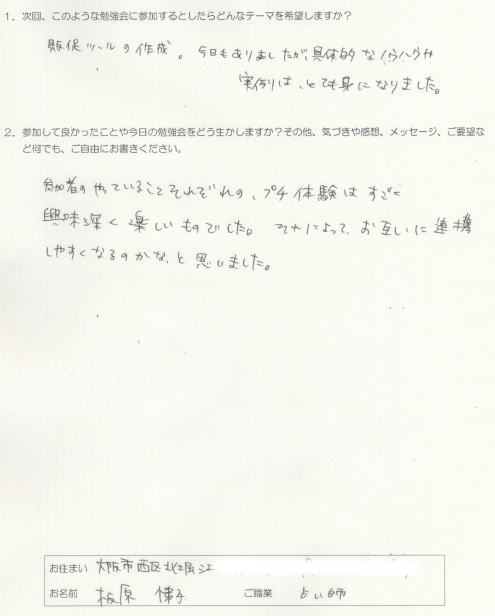 1．次回、このような勉強会に参加するとしたらどんなテーマを希望しますか？
販促ツールの作成。今日もありましたが、具体的なノウハウや
実例は、とても身になりました。
2．参加して良かったことや今日の勉強会をどう生かしますか？その他、気づきや感想、メッセージ、ご要望な
ど何でも、ご自由にお書きください。
参加者のやっていることそれぞれの、プチ体験はすごく
興味深く楽しいものでした。それによって、お互いに連携
しやすくなるのかな、と思いました。
お住まい 大阪市西区北堀江
お名前 板原 ご職業 占い師